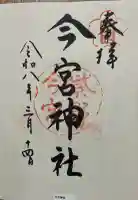 奉拝
今宮神社
令和八年三月十四日